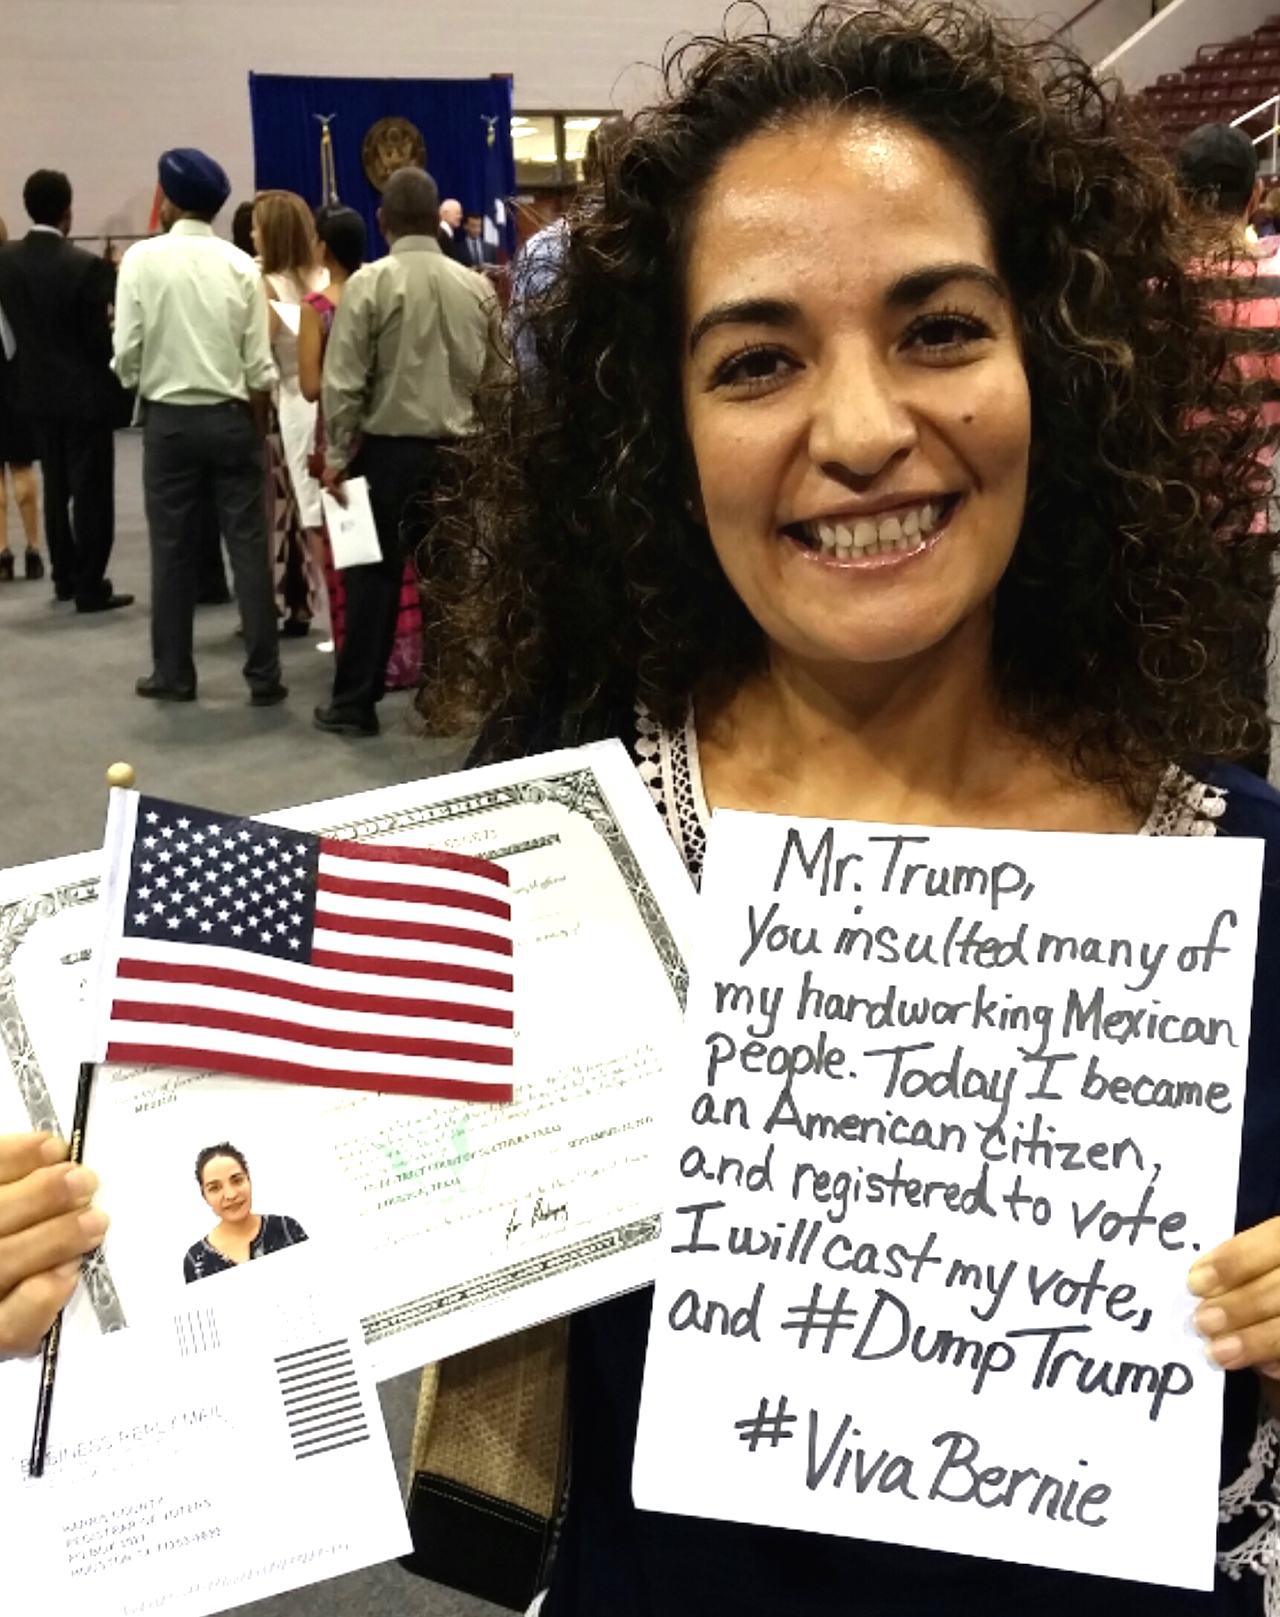 Mr. Trump,
You insulted many of
my hardworking Mexican
people. Today I became
an American citizen,
and registered to vote.
I will cast my vote,
and #DumpTrump
#VivaBernie
MEXICO
HOUSTON, TEXAS
BUSINESS REPLY MAIL
HARRIS COUNTY
REGISTRAR OF VOTERS
PO BOX
HOUSTON TX